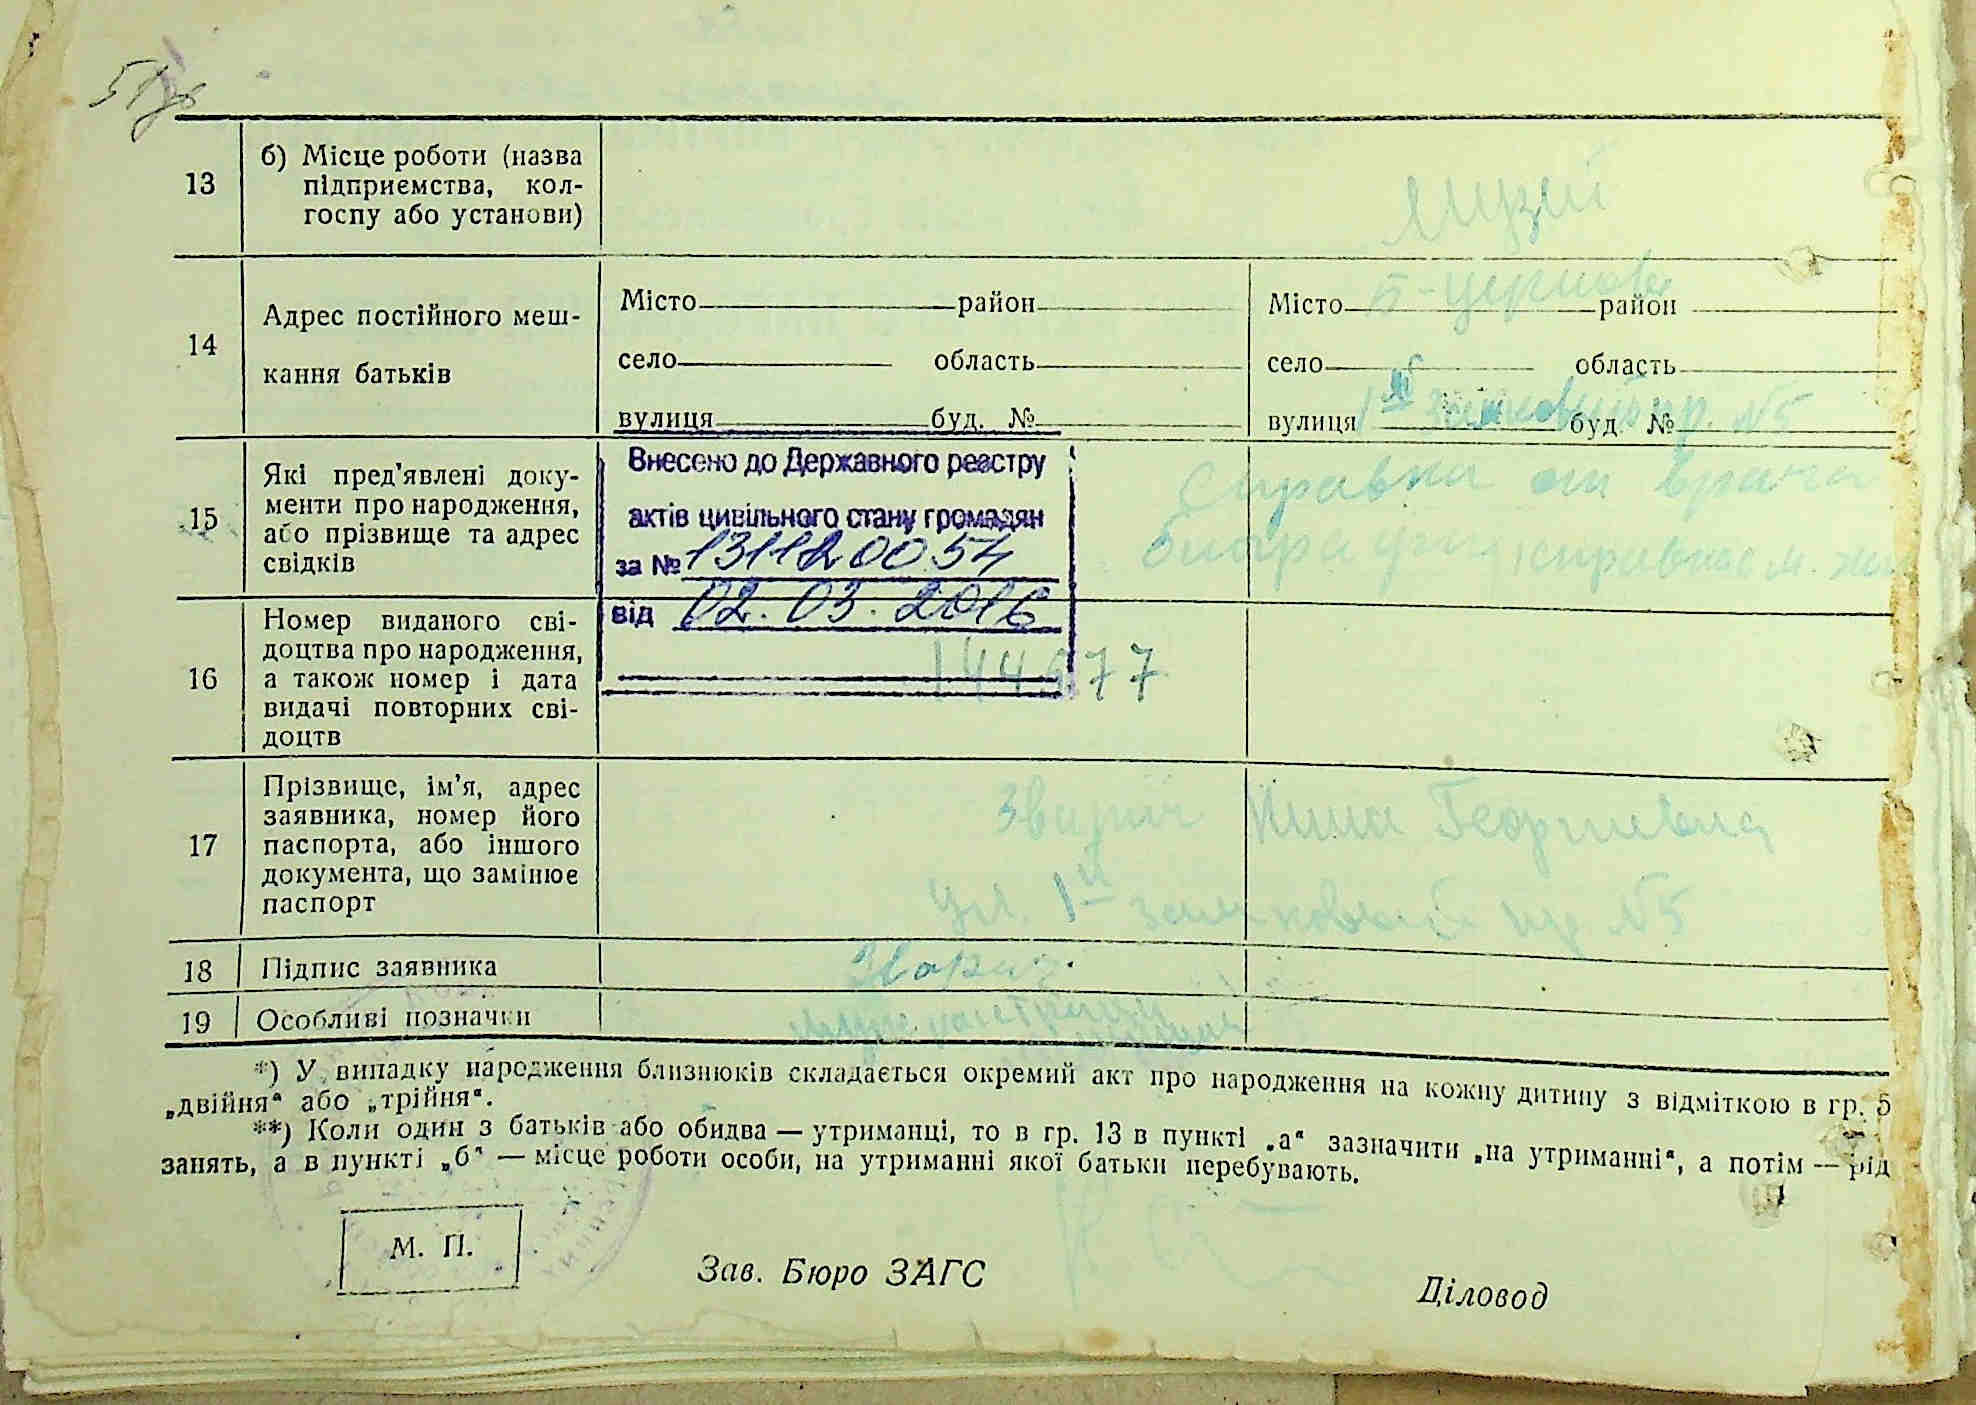 13
б) Місце роботи (назва
підприємства, кол-
госпу або установи)
Музей
14
Адрес постійного меш-
кання батьків
Місто район
село область
вулиця буд. №
Місто Б-Церковь район
село область
вулиця 1й замковый пр. №5 буд №
15
Які пред'явлені доку-
менти про народження,
або прізвище та адрес
свідків
Внесено до Державного реєстру
актів цивільного стану громадян
за № 1311120054
від 02.03.2016
Справка от врача
справка с м. жит
16
Номер виданого сві-
доцтва про народження,
а також номер і дата
видачі повторних сві-
доцтв
144577
17
Прізвище, ім'я, адрес
заявника, номер його
паспорта, або іншого
документа, що замінює
паспорт
Зварич Нина Георгиевна
ул. 1й замковый пр №5
18 Підпис заявника
Зварич
19 Особливі позначки
*) У випадку народження близнюків складається окремий акт про народження на кожну дитину з відміткою в гр. 5
„двійня“ або „трійня“.
**) Коли один з батьків або обидва — утриманці, то в гр. 13 в пункті „а“ зазначити „на утриманні“, а потім — рід
занять, а в пункті „б“ — місце роботи особи, на утриманні якої батьки перебувають.
М. П.
Зав. Бюро ЗАГС
Діловод